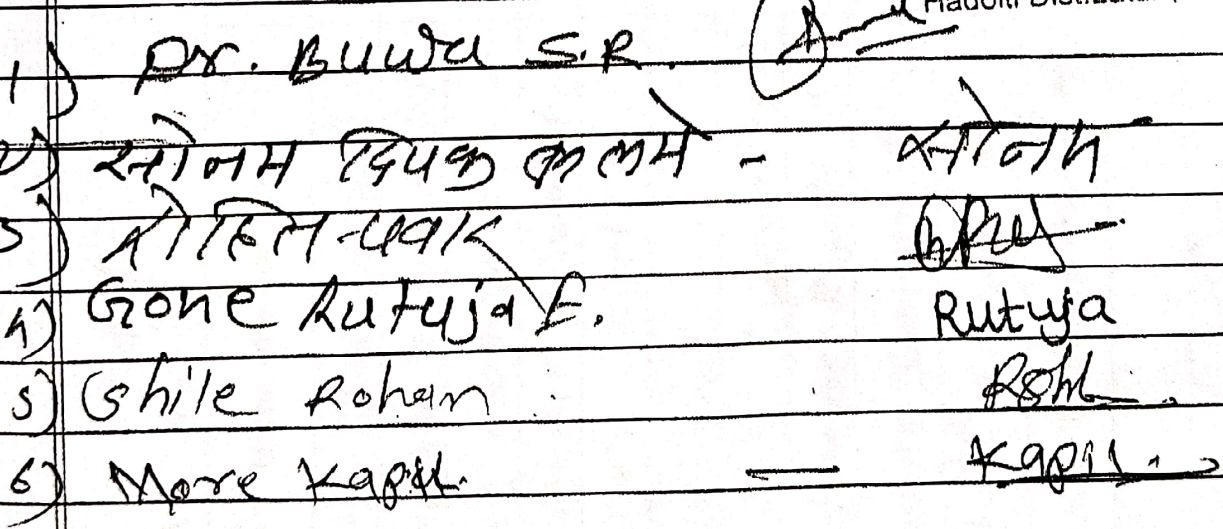 Hadolti
1) Dr. Buwa S.R.
२) सोनम दिपक कलमे - सोनम
3) रोहित पवार
4) Gone Rutuja E. Rutuja
5) Ghile Rohan
6) More Kapil. — Kapil.